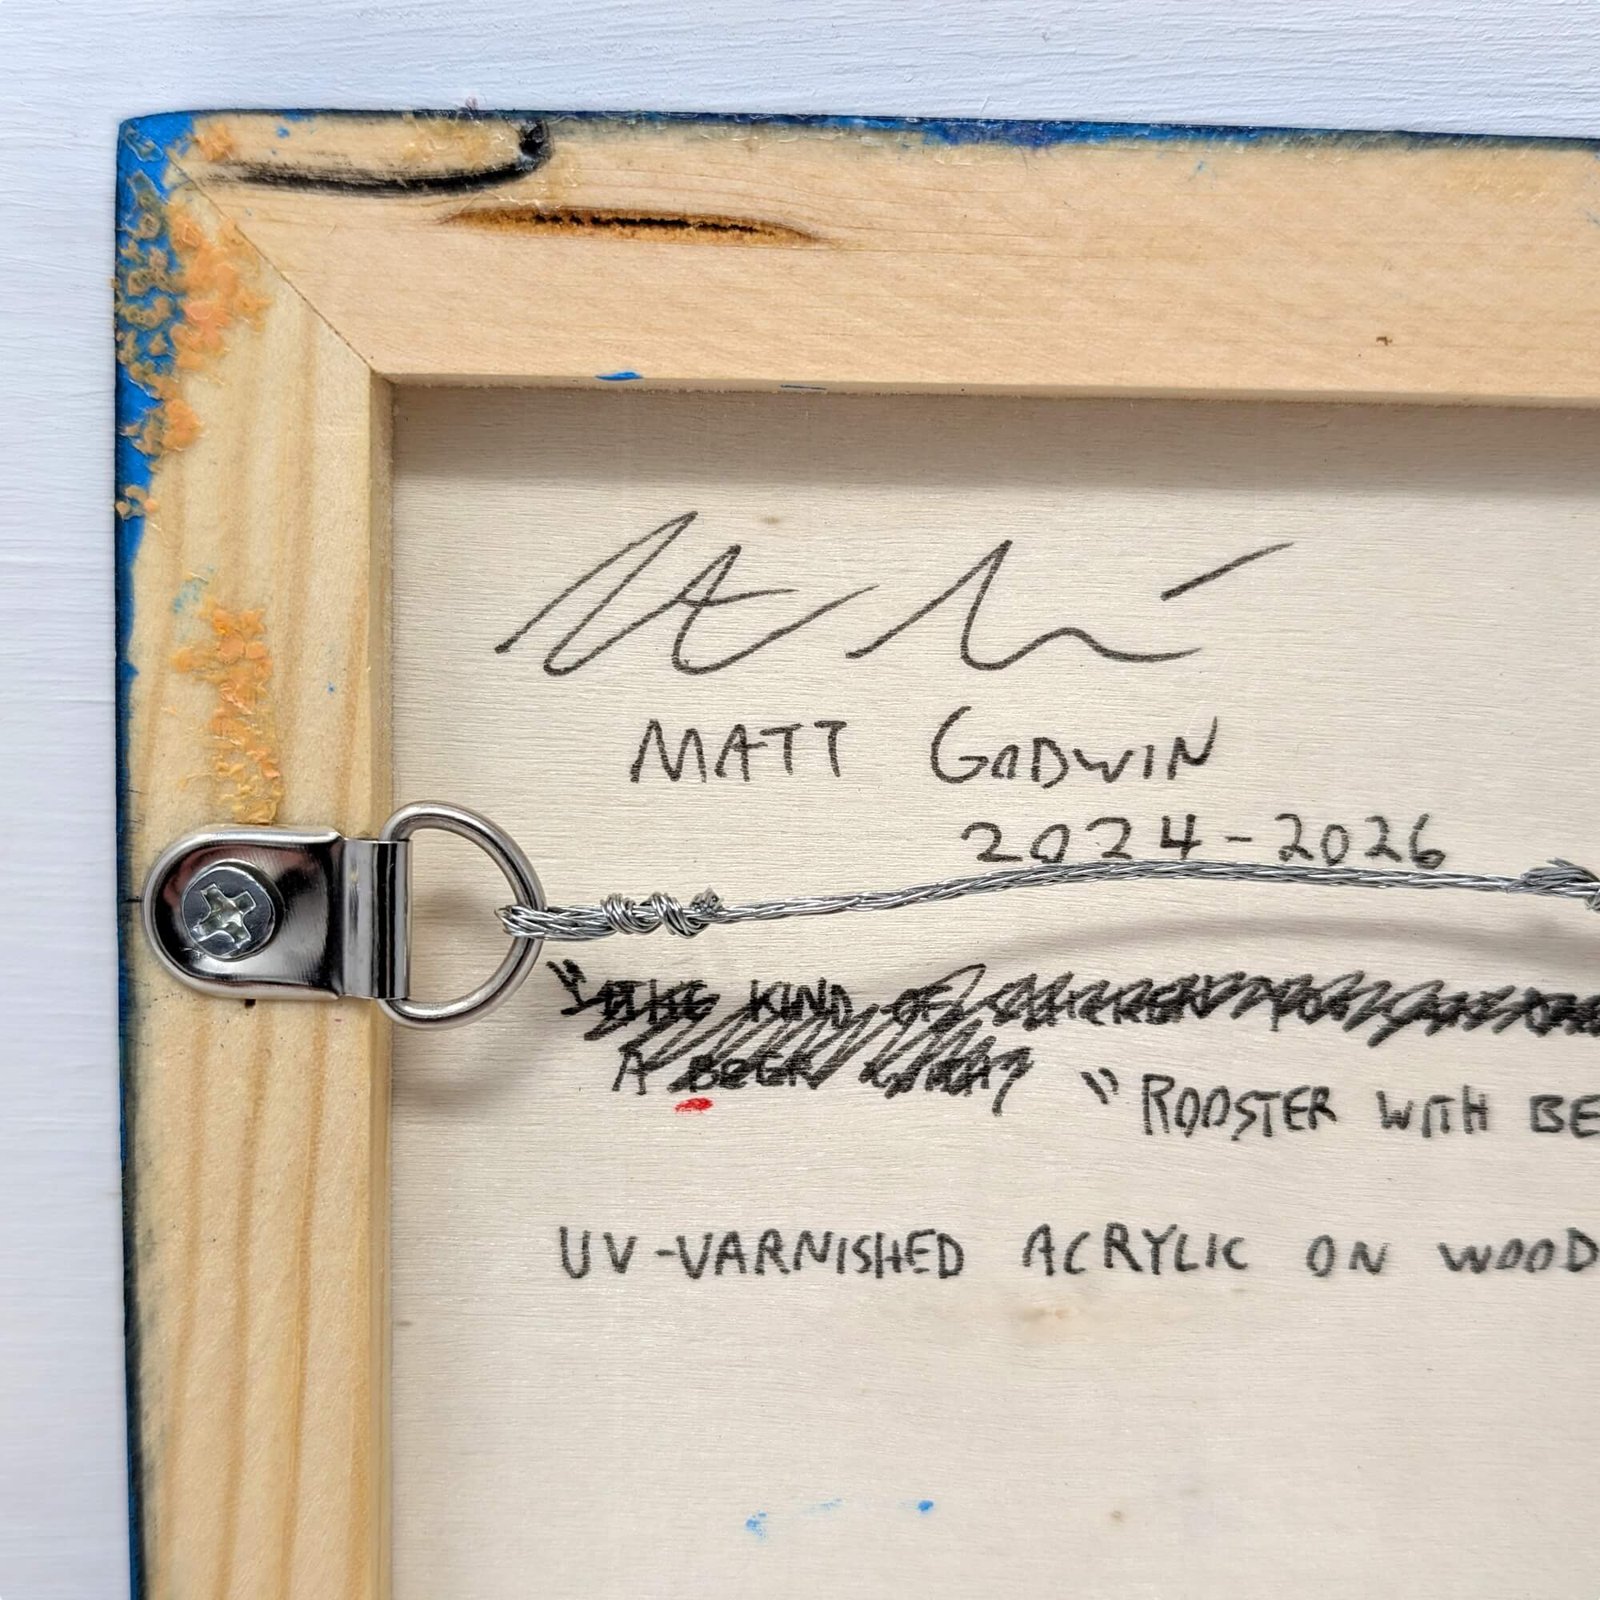 MATT GODWIN
2024-2026
KIND OF
A BEER
"ROOSTER WITH BE
UV-VARNISHED ACRYLIC ON WOOD